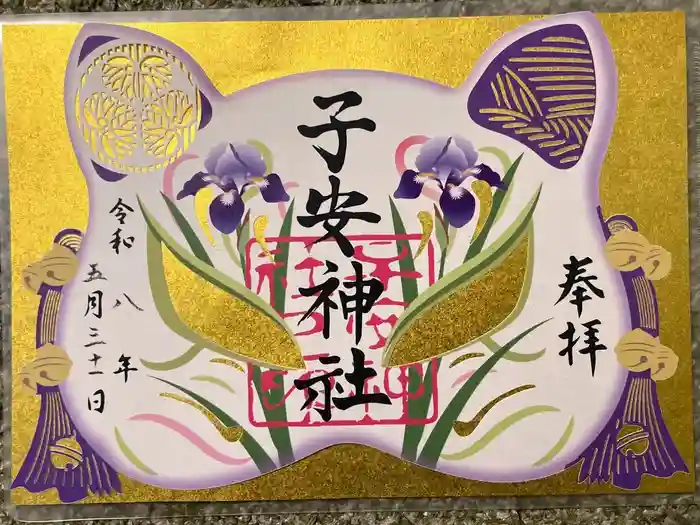 奉拝
子安神社
令和八年
五月三十一日